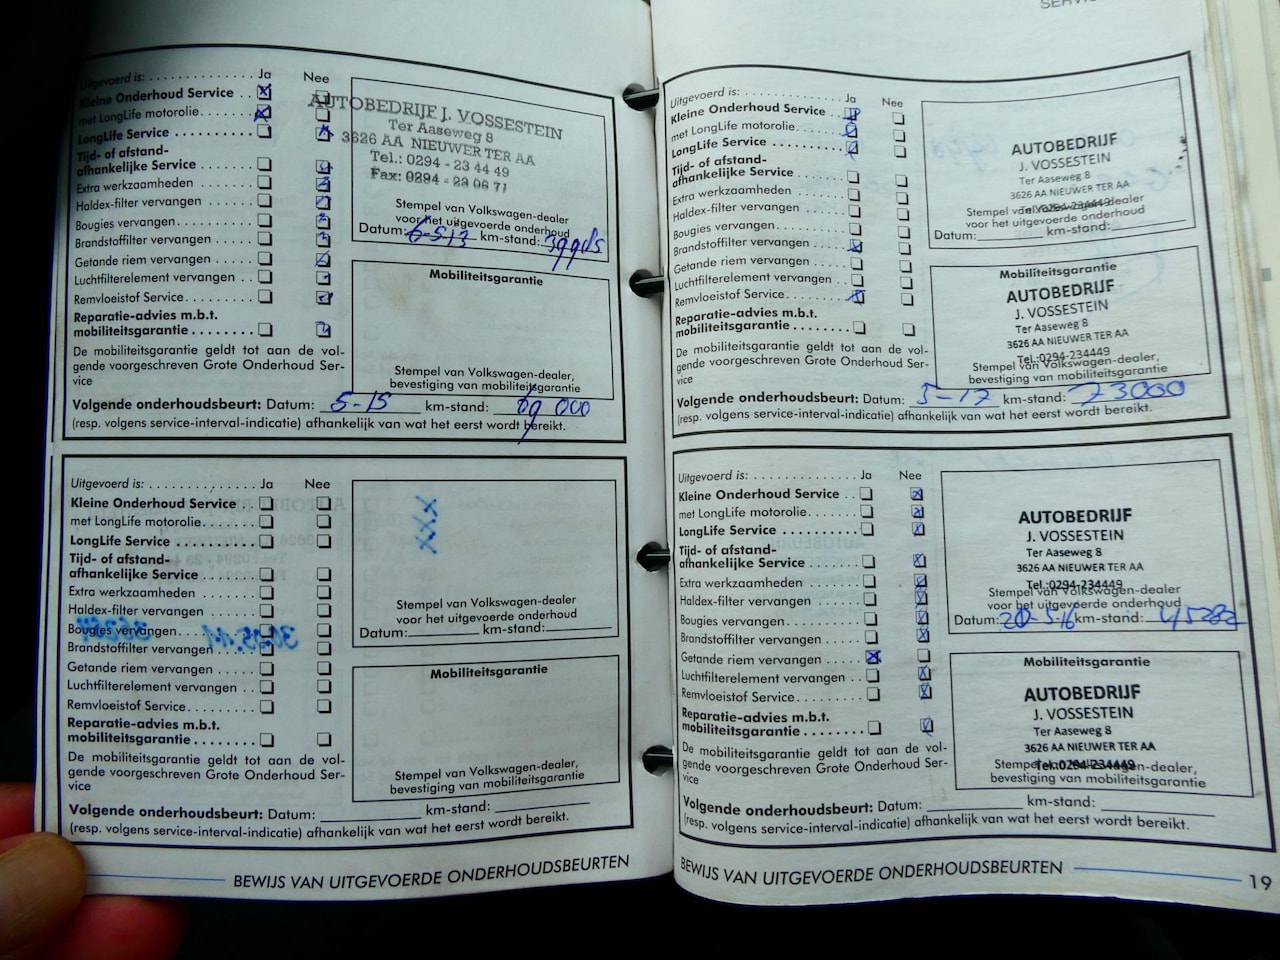 SERVI
Uitgevoerd is: . . . . . . . . . . . . . . Ja Nee
Kleine Onderhoud Service . .
met LongLife motorolie . . . .
LongLife Service . . . . . . . . . .
Tijd- of afstand-
afhankelijke Service . . . . . .
Extra werkzaamheden . . . . .
Haldex-filter vervangen . . . .
Bougies vervangen. . . . . . . .
Brandstoffilter vervangen . . .
Getande riem vervangen . . . .
Luchtfilterelement vervangen . .
Remvloeistof Service. . . . . . .
Reparatie-advies m.b.t.
mobiliteitsgarantie . . . . . . . .
De mobiliteitsgarantie geldt tot aan de vol-
gende voorgeschreven Grote Onderhoud Ser-
vice
AUTOBEDRIJF J. VOSSESTEIN
Ter Aaseweg 8
3626 AA NIEUWER TER AA
Tel.: 0294 - 23 44 49
Fax: 0294 - 23 06 71
Stempel van Volkswagen-dealer
voor het uitgevoerde onderhoud
Datum: 6-5-13 km-stand:
Mobiliteitsgarantie
Stempel van Volkswagen-dealer,
bevestiging van mobiliteitsgarantie
Volgende onderhoudsbeurt: Datum: 5-15 km-stand: 69 000
(resp. volgens service-interval-indicatie) afhankelijk van wat het eerst wordt bereikt.
Uitgevoerd is: . . . . . . . . . . . . . . Ja Nee
Kleine Onderhoud Service . .
met LongLife motorolie. . . . .
LongLife Service . . . . . . . . . .
Tijd- of afstand-
afhankelijke Service . . . . . .
Extra werkzaamheden . . . . .
Haldex-filter vervangen . . . .
Bougies vervangen. . . . . . . .
Brandstoffilter vervangen . . .
Getande riem vervangen . . . .
Luchtfilterelement vervangen . .
Remvloeistof Service. . . . . . .
Reparatie-advies m.b.t.
mobiliteitsgarantie . . . . . . . .
De mobiliteitsgarantie geldt tot aan de vol-
gende voorgeschreven Grote Onderhoud Ser-
vice
Stempel van Volkswagen-dealer
voor het uitgevoerde onderhoud
Datum: km-stand:
Mobiliteitsgarantie
Stempel van Volkswagen-dealer,
bevestiging van mobiliteitsgarantie
Volgende onderhoudsbeurt: Datum: km-stand:
(resp. volgens service-interval-indicatie) afhankelijk van wat het eerst wordt bereikt.
BEWIJS VAN UITGEVOERDE ONDERHOUDSBEURTEN
Uitgevoerd is: . . . . . . . . . . . . . . Ja Nee
Kleine Onderhoud Service . .
met LongLife motorolie. . . . .
LongLife Service . . . . . . . . . .
Tijd- of afstand-
afhankelijke Service . . . . . .
Extra werkzaamheden . . . . .
Haldex-filter vervangen . . . .
Bougies vervangen. . . . . . . .
Brandstoffilter vervangen . . .
Getande riem vervangen . . . .
Luchtfilterelement vervangen . .
Remvloeistof Service. . . . . . .
Reparatie-advies m.b.t.
mobiliteitsgarantie . . . . . . . .
De mobiliteitsgarantie geldt tot aan de vol-
gende voorgeschreven Grote Onderhoud Ser-
vice
AUTOBEDRIJF
J. VOSSESTEIN
Ter Aaseweg 8
3626 AA NIEUWER TER AA
Tel.:0294-234449
Stempel van Volkswagen-dealer
voor het uitgevoerde onderhoud
Datum: km-stand:
Mobiliteitsgarantie
AUTOBEDRIJF
J. VOSSESTEIN
Ter Aaseweg 8
3626 AA NIEUWER TER AA
Tel.:0294-234449
Stempel van Volkswagen-dealer,
bevestiging van mobiliteitsgarantie
Volgende onderhoudsbeurt: Datum: 5-17 km-stand: 73000
(resp. volgens service-interval-indicatie) afhankelijk van wat het eerst wordt bereikt.
Uitgevoerd is: . . . . . . . . . . . . . . Ja Nee
Kleine Onderhoud Service . .
met LongLife motorolie. . . . .
LongLife Service . . . . . . . . . .
Tijd- of afstand-
afhankelijke Service . . . . . .
Extra werkzaamheden . . . . .
Haldex-filter vervangen . . . .
Bougies vervangen. . . . . . . .
Brandstoffilter vervangen . . .
Getande riem vervangen . . . .
Luchtfilterelement vervangen . .
Remvloeistof Service. . . . . . .
Reparatie-advies m.b.t.
mobiliteitsgarantie . . . . . . . .
De mobiliteitsgarantie geldt tot aan de vol-
gende voorgeschreven Grote Onderhoud Ser-
vice
AUTOBEDRIJF
J. VOSSESTEIN
Ter Aaseweg 8
3626 AA NIEUWER TER AA
Tel.:0294-234449
Stempel van Volkswagen-dealer
voor het uitgevoerde onderhoud
Datum: 20-5-16 km-stand:
Mobiliteitsgarantie
AUTOBEDRIJF
J. VOSSESTEIN
Ter Aaseweg 8
3626 AA NIEUWER TER AA
Tel.:0294-234449
Stempel van Volkswagen-dealer,
bevestiging van mobiliteitsgarantie
Volgende onderhoudsbeurt: Datum: km-stand:
(resp. volgens service-interval-indicatie) afhankelijk van wat het eerst wordt bereikt.
BEWIJS VAN UITGEVOERDE ONDERHOUDSBEURTEN
19